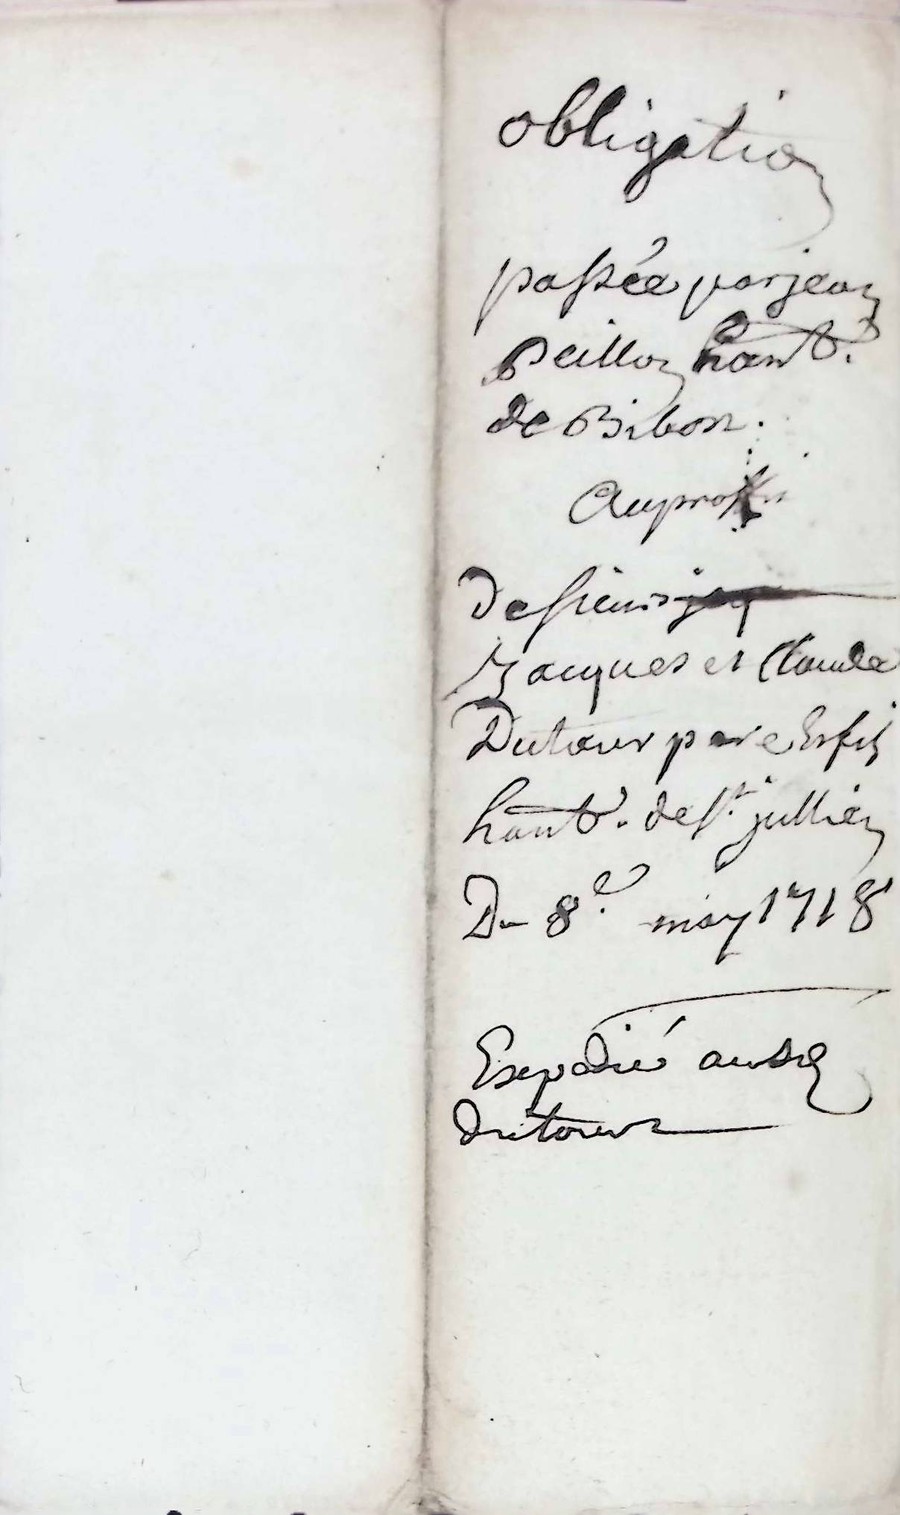 obligation
passée par jean
Peillon hant.
de Bibost.
Au proffit
De sieurs
Jacques et Claude
Dutour pere et fils
hant. de st. jullien
Du 8e. may 1718
Expedié audit
dutour